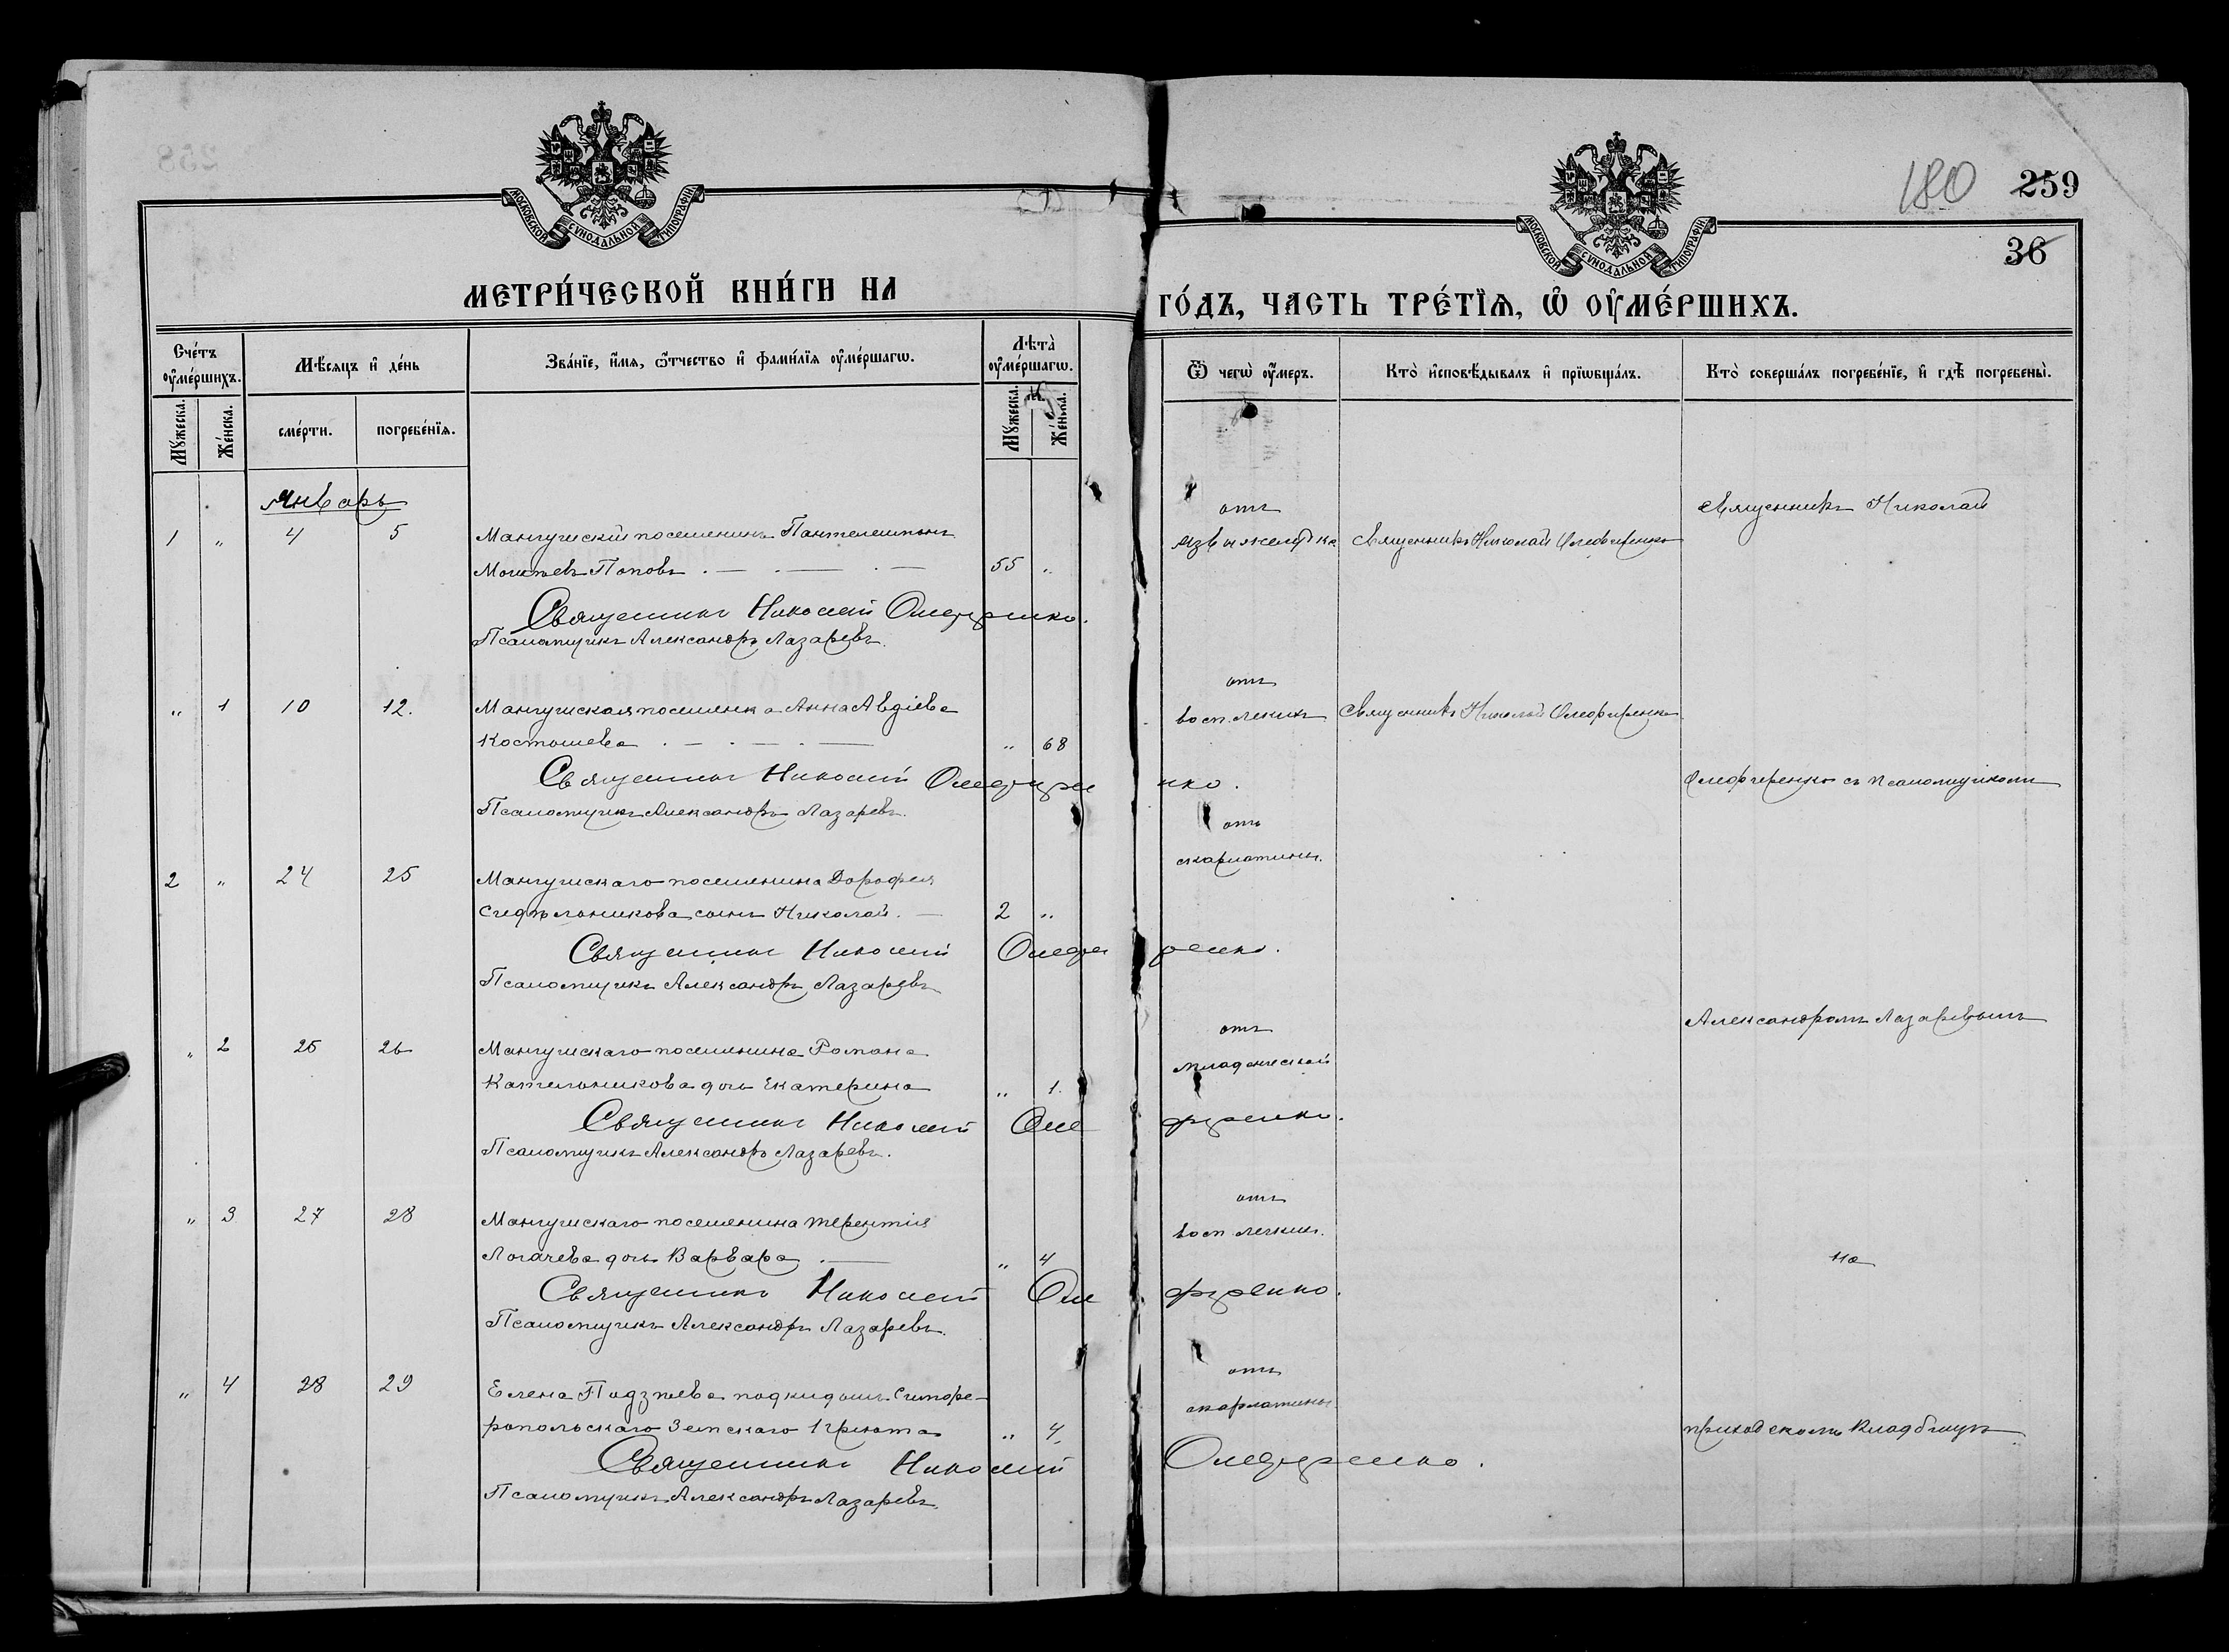 180 259
36
МОСКОВСКОЙ СѴНОДАЛЬНОЙ ТИПОГРАФІИ
МОСКОВСКОЙ СѴНОДАЛЬНОЙ ТИПОГРАФІИ
МЕТРИ́ЧЕСКОЙ КНИ́ГИ НА ГО́ДЪ, ЧАСТЬ ТРЕ́ТЇѦ, Ѡ ОУМЕ́РШИХЪ.
Сче́тъ оумéршихъ.
Мꙋ́жеска.
Же́нска.
Мѣ́сяцъ и де́нь
сме́рти.
погребе́нїѧ.
Зва́нїе, и́мѧ, ѻ́тчество и фами́лїѧ оуме́ршагѡ.
Лѣта̀ оуме́ршагѡ.
Мꙋ́жеска.
Же́нска.
Ѿ чегѡ̀ оу́меръ.
Кто̀ исповѣ́дывалъ и прїѡбща́лъ.
Кто̀ соверша́лъ погребе́нїе, и гдѣ̀ погребены̀.
Январь
1 " 4 5 Мангушскій поселянинъ Пантелеимонъ
Поповъ 55 "
отъ язвы желудка
Священникъ Николай Олефиренко
Священникъ Николай
Священникъ Николай Олефиренко.
Псаломщикъ Александръ Лазаревъ.
" 1 10 12. Мангушская поселянка Анна Авдіева
Костышева " 68
отъ
восп. легкихъ
Священникъ Николай Олефиренко
Священникъ Николай Олефиренко.
Псаломщикъ Александръ Лазаревъ.
Олефиренко съ псаломщикомъ
2 " 24 25 Мангушскаго поселянина Дорофея
Сидѣльникова сынъ Николай. 2 "
отъ
скарлатины.
Священникъ Николай Олефиренко.
Псаломщикъ Александръ Лазаревъ
Александромъ Лазаревымъ
" 2 25 26 Мангушскаго поселянина Романа
Кательникова дочь Екатерина " 1.
отъ
младенческой
Священникъ Николай Олефиренко.
Псаломщикъ Александръ Лазаревъ.
" 3 27 28 Мангушскаго поселянина Терентія
Логачева дочь Варвара " 4
отъ
восп. легкихъ.
на
Священникъ Николай Олефиренко.
Псаломщикъ Александръ Лазаревъ.
" 4 28 29 Елена подкидышъ Симфе-
ропольскаго Земскаго Пріюта " 4.
отъ
скарлатины
приходскомъ кладбищѣ
Священникъ Николай Олефиренко.
Псаломщикъ Александръ Лазаревъ.